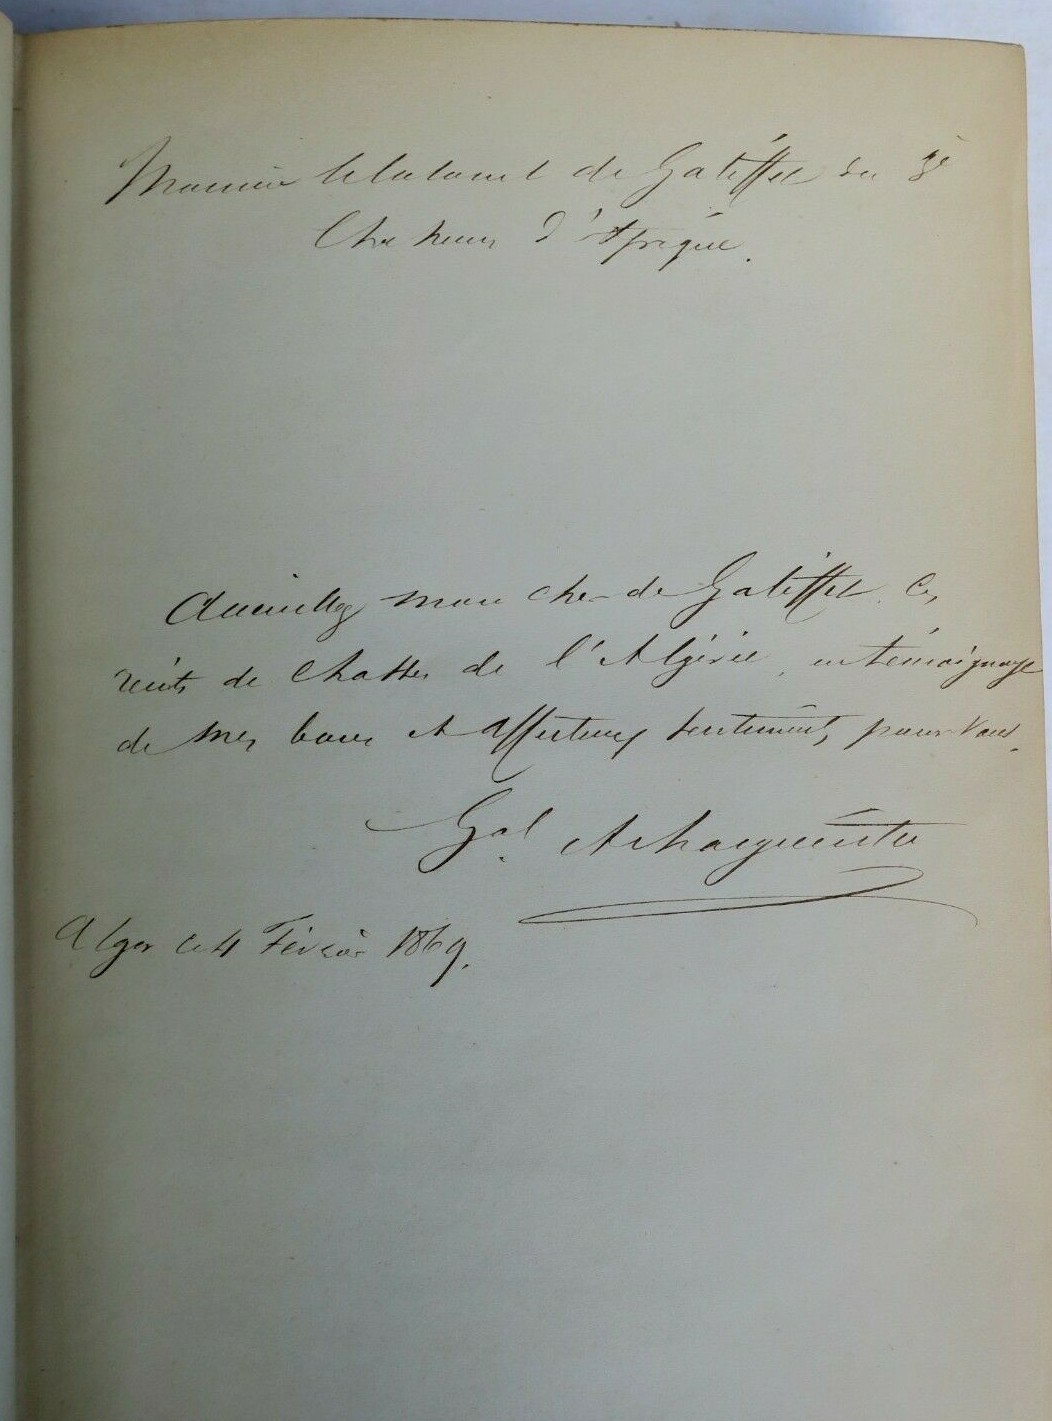 Monsieur le Colonel de Galiffet du 3e
Chasseurs d'Afrique.
Accueillez mon cher de Galiffet ces
récits de Chasses de l'Algérie, en témoignage
de mes bons et affectueux sentiments pour vous.
Gal A Margueritte
Alger ce 4 Février 1869.